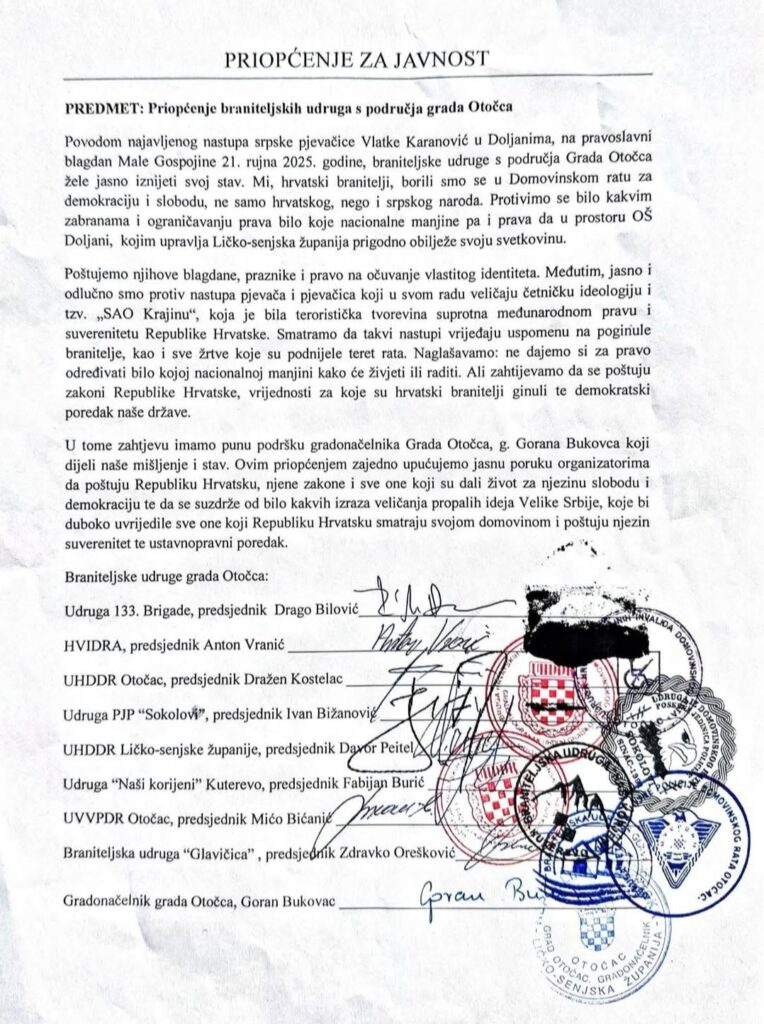 PRIOPĆENJE ZA JAVNOST
PREDMET: Priopćenje braniteljskih udruga s područja grada Otočca
Povodom najavljenog nastupa srpske pjevačice Vlatke Karanović u Doljanima, na pravoslavni
blagdan Male Gospojine 21. rujna 2025. godine, braniteljske udruge s područja Grada Otočca
žele jasno iznijeti svoj stav. Mi, hrvatski branitelji, borili smo se u Domovinskom ratu za
demokraciju i slobodu, ne samo hrvatskog, nego i srpskog naroda. Protivimo se bilo kakvim
zabranama i ograničavanju prava bilo koje nacionalne manjine pa i prava da u prostoru OŠ
Doljani, kojim upravlja Ličko-senjska županija prigodno obilježe svoju svetkovinu.
Poštujemo njihove blagdane, praznike i pravo na očuvanje vlastitog identiteta. Međutim, jasno i
odlučno smo protiv nastupa pjevača i pjevačica koji u svom radu veličaju četničku ideologiju i
tzv. „SAO Krajinu“, koja je bila teroristička tvorevina suprotna međunarodnom pravu i
suverenitetu Republike Hrvatske. Smatramo da takvi nastupi vrijeđaju uspomenu na poginule
branitelje, kao i sve žrtve koje su podnijele teret rata. Naglašavamo: ne dajemo si za pravo
određivati bilo kojoj nacionalnoj manjini kako će živjeti ili raditi. Ali zahtijevamo da se poštuju
zakoni Republike Hrvatske, vrijednosti za koje su hrvatski branitelji ginuli te demokratski
poredak naše države.
U tome zahtjevu imamo punu podršku gradonačelnika Grada Otočca, g. Gorana Bukovca koji
dijeli naše mišljenje i stav. Ovim priopćenjem zajedno upućujemo jasnu poruku organizatorima
da poštuju Republiku Hrvatsku, njene zakone i sve one koji su dali život za njezinu slobodu i
demokraciju te da se suzdrže od bilo kakvih izraza veličanja propalih ideja Velike Srbije, koje bi
duboko uvrijedile sve one koji Republiku Hrvatsku smatraju svojom domovinom i poštuju njezin
suverenitet te ustavnopravni poredak.
Braniteljske udruge grada Otočca:
Udruga 133. Brigade, predsjednik Drago Bilović
HVIDRA, predsjednik Anton Vranić
UHDDR Otočac, predsjednik Dražen Kostelac
Udruga PJP “Sokolovi”, predsjednik Ivan Bižanović
UHDDR Ličko-senjske županije, predsjednik Davor Peitel
Udruga “Naši korijeni” Kuterevo, predsjednik Fabijan Burić
UVVPDR Otočac, predsjednik Mićo Bićanić
Braniteljska udruga “Glavičica” , predsjednik Zdravko Orešković
Gradonačelnik grada Otočca, Goran Bukovac
Goran
INVALIDA DOMOVINSKOG
UHDDR
UHDDR
BRANITELJSKA UDRUGA
DOMOVINSKOG RATA OTOČAC
GRAD OTOČAC, GRADONAČELNIK
OTOČAC
LIČKO-SENJSKA ŽUPANIJA